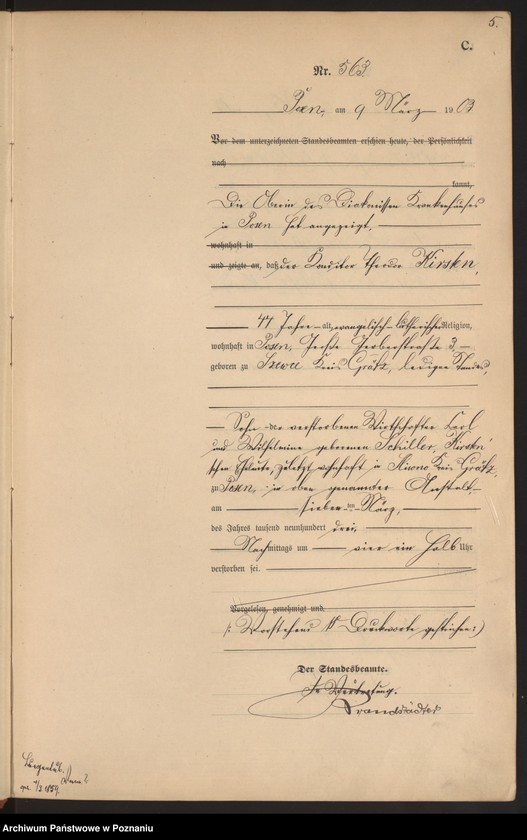 5.
C.
Nr. 563
Posen, am 9 März 1903
Vor dem unterzeichneten Standesbeamten erschien heute, der Persönlichkeit
nach
kannt,
Die Oberin des Diakonissen Krankenhauses
in Posen hat angezeigt,
wohnhaft in
und zeigte an, daß der Konditor Theodor Kirsten,
47 Jahre alt, evangelisch-lutherischer Religion,
wohnhaft in Posen, Große Gerberstraße 3,
geboren zu Szewce Kreis Grätz, ledigen Standes,
Sohn der verstorbenen Wirthschafter Karl
und Wilhelmine geborenen Schiller, Kirsten'
schen Eheleute, zuletzt wohnhaft in Kreis Grätz,
zu Posen, in oben genannter Anstalt,
am sieben ten März,
des Jahres tausend neunhundert drei,
Nachmittags um vier ein halb Uhr
verstorben sei.
Vorgelesen, genehmigt und
(: Vorstehend Druckworte gestrichen :)
Der Standesbeamte.
In Vertretung.
Brandstädter
1/3 1859
Archiwum Państwowe w Poznaniu